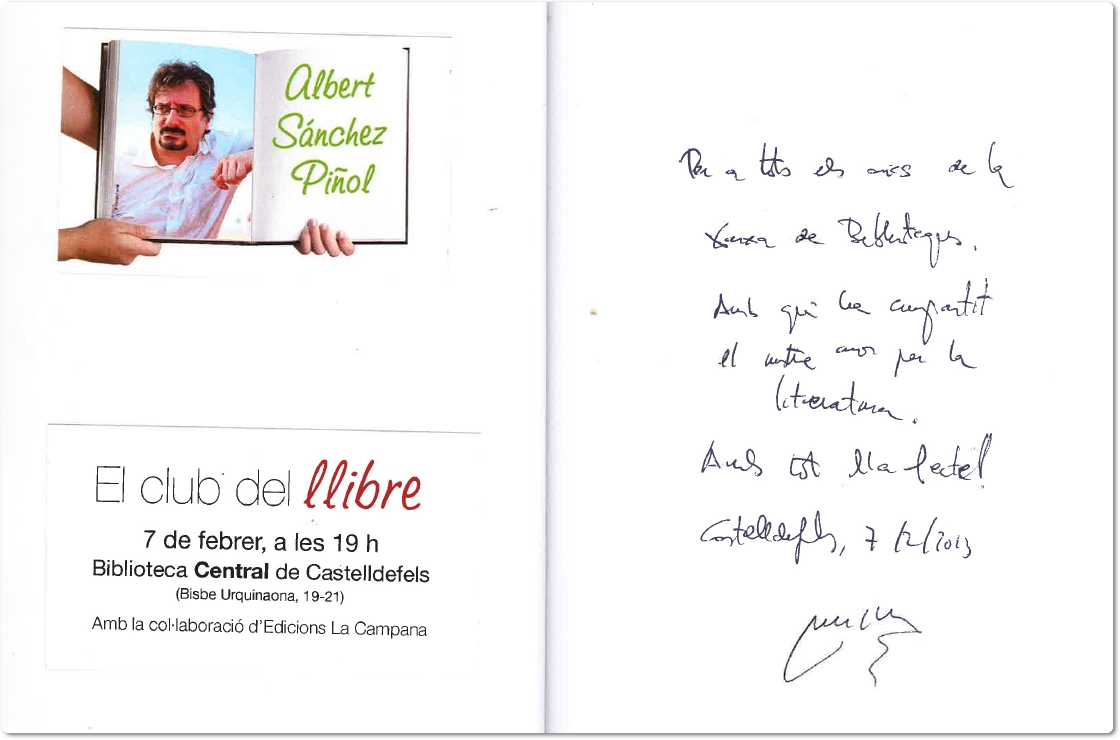 Albert
Sánchez
Piñol
El club del llibre
7 de febrer, a les 19 h
Biblioteca Central de Castelldefels
(Bisbe Urquinaona, 19-21)
Amb la col·laboració d'Edicions La Campana
Per a tots els amics de la
Xarxa de Biblioteques.
Amb qui he compartit
el nostre amor per la
literatura.
Amb tot l'afecte!
Castelldefels, 7/2/2013